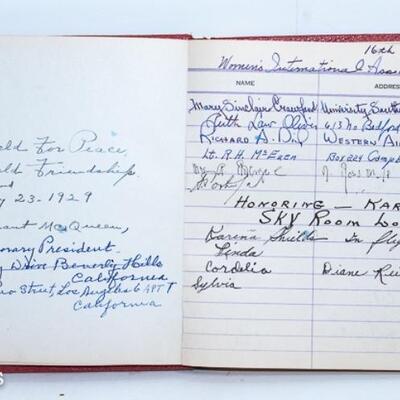 ld For Peace
ld Friendship
y 23-1929
ant McQueen,
orary President
Drive Beverly Hills
California
Street, Los Angeles 6 APT T
California
16th
Women's International Asso
NAME ADDRESS
Mary Sinclair Crawford University South
Ruth Law Oliver 613 No Bedford
Richard A. Western Air
Lt. R.H. McEwen Box 224 Camp
HONORING - KAR
SKY ROOM LO
Karina Shields In fli
Linda
Cordelia Diane Rei
Sylvia
s